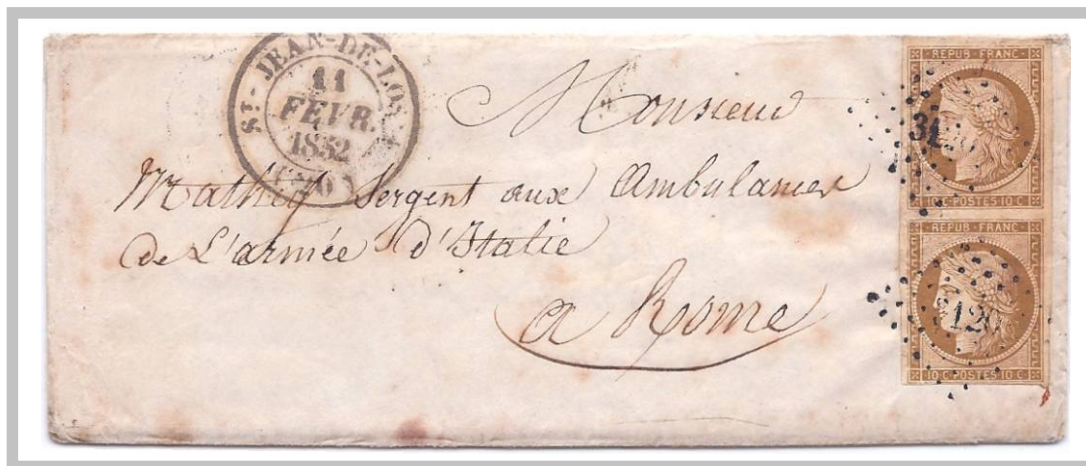 ST-JEAN-DE-LOS
11
FÉVR.
1852
(20)
Monsieur
Mathey Sergent aux Ambulances
de L'armée d'Italie
a Rome
REPUB · FRANC ·
10 C · POSTES · 10 C ·
REPUB · FRANC ·
3120
10 C · POSTES · 10 C ·